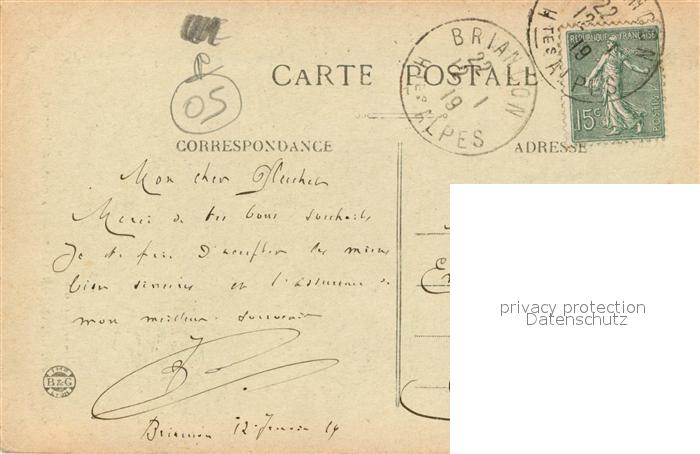 05
CARTE POSTALE
BRIANÇON
22
12-1
19
Htes ALPES
REPUBLIQUE FRANÇAISE
15c
POSTES
CORRESPONDANCE
ADRESSE
Mon cher
Merci de tes bons souhaits
Je te prie d'accepter les miens
bien sincères et l'assurance de
mon meilleur souvenir
Briançon 12 Janvier 19
B&G
LYON
privacy protection
Datenschutz